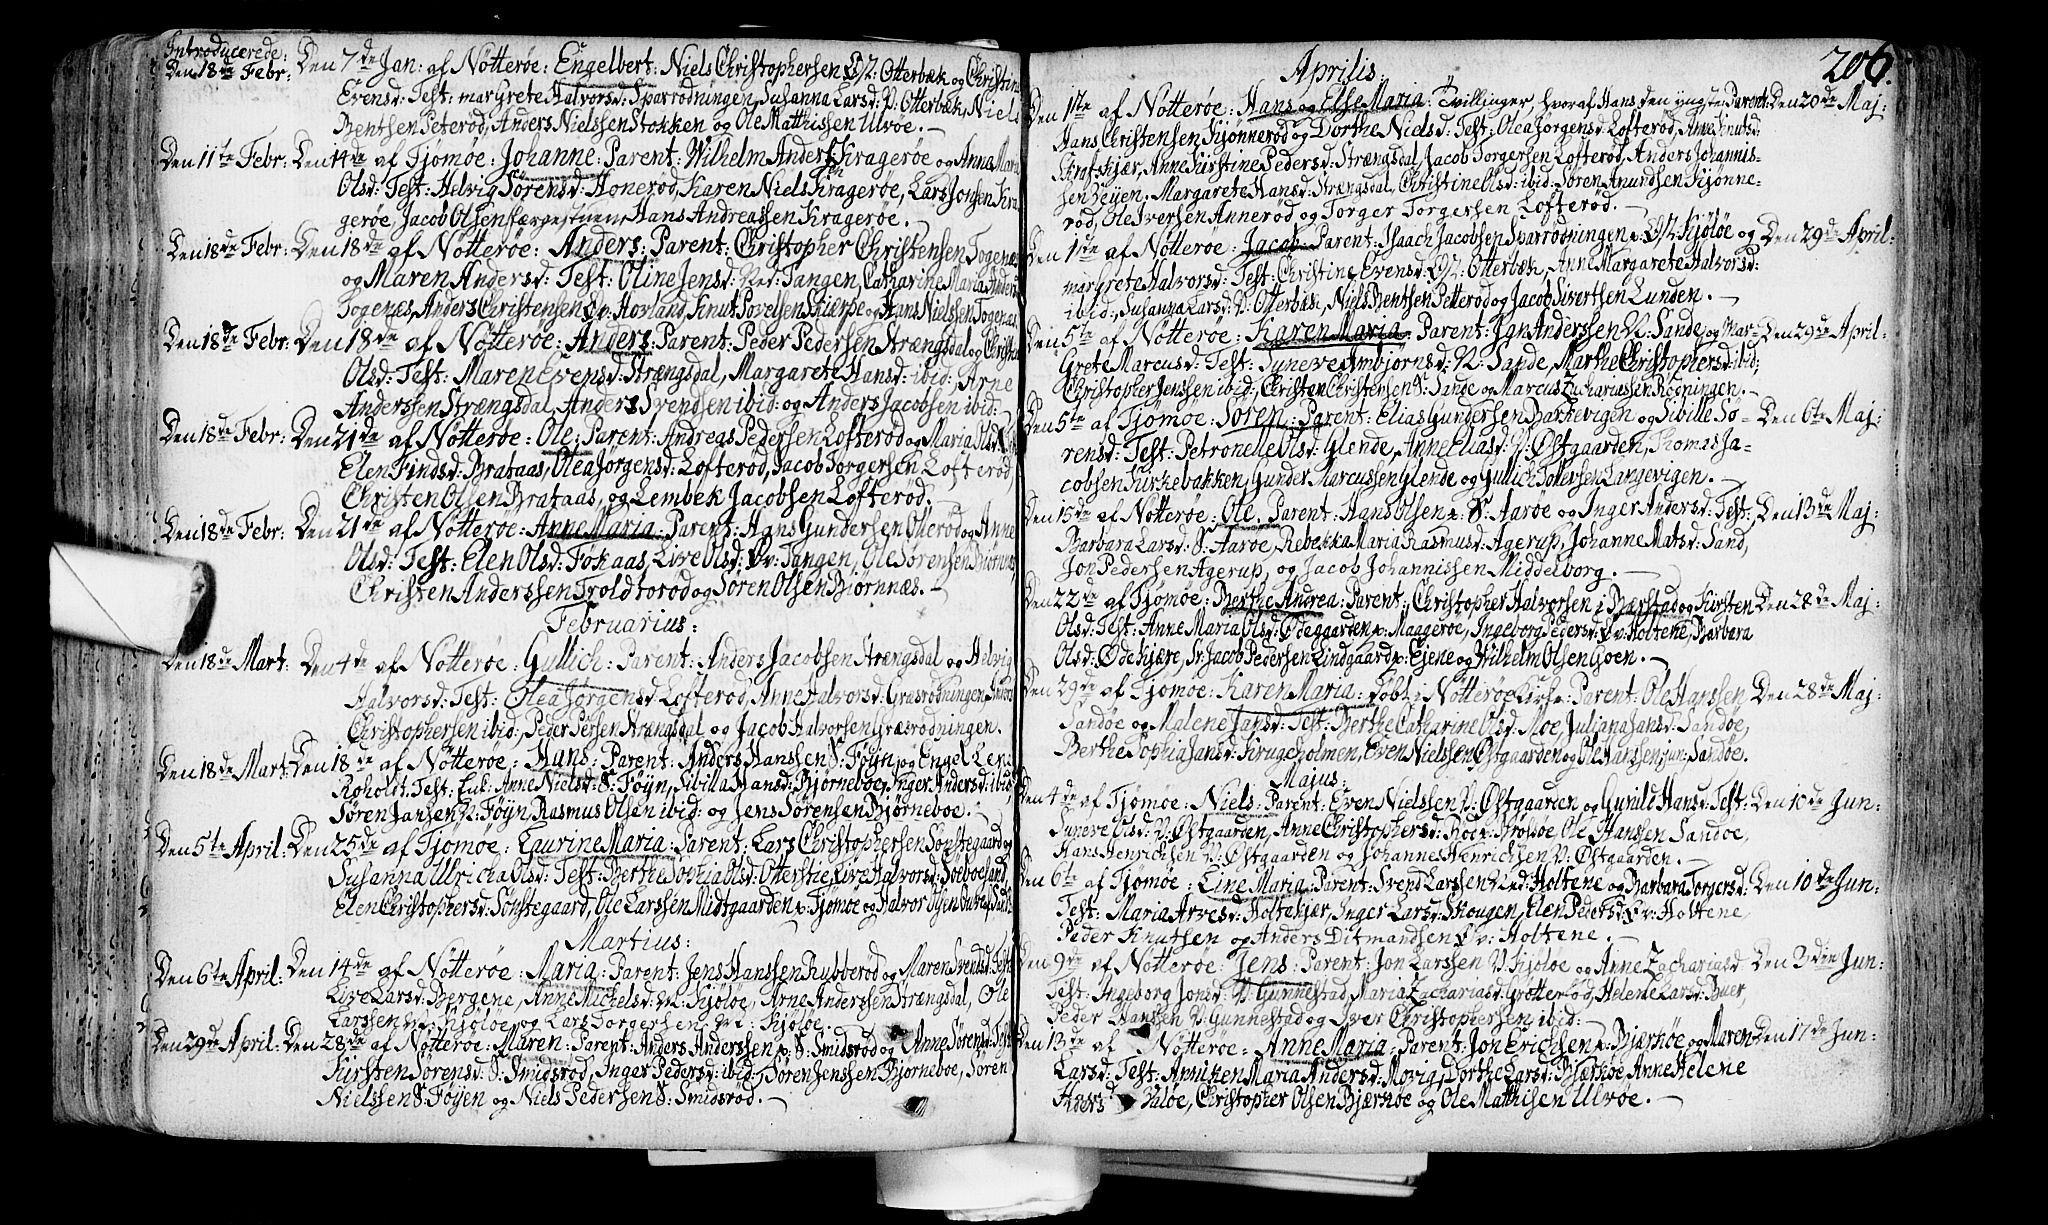 Introducerede:
Den 18de Febr: Den 7de Jan: af Nøtterøe: Engelbert: Niels Christophersen Otterbæk og Christine
Evensd: Test: margrete Halvorsd: Sparrodningen, Susanna Larsd: V: Otterbæk, Niels
Bentsen Peterød, Anders Nielssen Stokken og Ole Matthissen Ulvøe. —
Den 11te Febr: Den 14de af Tjømøe: Johanne: Parent: Wilhelm Anders: Kragerøe og Anne Maria
Olsd: Test: Helvig Sørensd: Honerød, Karen Niels Kragerøe, Lars Jorgen Kra
gerøe, Jacob Olsen færgestuen, Hans Andreassen Kragerøe. —
Den 18de Febr: Den 18de af Nøtterøe: Anders: Parent: Christopher Christensen Togenæs
og Maren Andersd: Test: Oline Jensd: Tangen, Catharine Maria Anders
Togenes, Anders Christensen Hovland, Knut Povelsen Skjerpe og Hans Nielssen Togenæs
Den 18de Febr: Den 18de af Nøtterøe: Anders: Parent: Peder Pedersen Strængsdal og
Olsd: Test: Maren Evensd: Strængsdal, Margarete Hansd: ibid:, Arne
Anderssen Strængsdal, Anders Svendsen ibid: og Anders Jacobsen ibid: —
Den 18de Febr: Den 21de af Nøtterøe: Ole: Parent: Andreas Pedersen Lofterød og Maria Olsd:
Elen Findsd: Brataas, Olea Jorgensd: Lofterød, Jacob Torgersen Lofterød,
Christen Olsen Brataas, og Lembek Jacobsen Lofterød. —
Den 18de Febr: Den 21de af Nøtterøe: Anne Maria: Parent: Hans Gundersen Oterød og Anne
Olsd: Test: Elen Olsd: Føkaas, Live Olsd: Tangen, Ole Sørensen Biornnæs,
Christen Anderssen Troldtorød og Sören Olsen Biornnæs. —
Februarius:
Den 18de Mart: Den 4de af Nøtterøe: Gullich: Parent: Anders Jacobsen Strængsdal og Helvig
Halvorsd: Test: Olea Jörgensd: Lofterød, Anne Halvorsd: Græsrodningen,
Christophersen ibid:, Peder Strængsdal og Jacob Halvorsen Græsrodningen.
Den 18de Mart: Den 18de af Nøtterøe: Hans: Parent: Anders Hanssen S: Føyn og Engel Len:
Roholdt: Test: Enk: Anne Nielsd: S: Føyn, Sibilla Hansd: Bjørneboe, Inger Andersd: ibid:
Søren Jansen N: Føyn, Rasmus Olsen ibid: og Jens Sörensen Bjørneboe. —
Den 5te April: Den 25de af Tjømøe: Laurine Maria: Parent: Lars Christophersen Sønstegaard og
Susanna Ulricha Olsd: Test: Berthe Sophia Olsd: Otterstie, Live Halvorsd: Søeboesand
Elen Christophersd: Sønstegaard, Ole Larssen Midtgaarden p: Tjømøe og Halvor
Martius:
Den 6te April: Den 14de af Nøtterøe: Maria: Parent: Jens Hanssen Rubberød og Maren Svendsd: Test:
Live Larsd: Bergene, Anne Michelsd: Kjøløe, Arne Anderssen Strængsdal, Ole
Larssen Kjøløe og Lars Torgersen Kjøløe.
Den 29de April: Den 28de af Nøtterøe: Maren: Parent: Anders Anderssen p: S: Smidsrød og Anne Sörensd: Test
Kirsten Sörensd: S: Smidsrød, Inger Pedersd: ibid:, Sören Jenssen Bjørneboe, Sören
Nielssen S: Føyen og Niels Pedersen S: Smidsrød. —
206.
Aprilis:
Den 1ste af Nøtterøe: Hans og Else Maria: Tvillinger, hvoraf Hans den yngste Parent: Den 20de Maj:
Hans Christensen Kjønnerød og Dorthe Nielsd: Test: Olea Jørgensd: Lofterød, Anne Knutsd:
Anne Kirstine Pedersd: Strængsdal, Jacob Torgersen Lofterød, Anders Johannis-
sen Beyen, Margarete Hansd: Strængsdal, Christine Olsd: ibid: Søren Anundsen Kjønne-
rød, Ole Iversen Annerød og Torger Torgersen Lofterød. —
Den 1ste af Nøtterøe: Jacob: Parent: Isaach Jacobsen Sparrodningen p: Kjøløe og Den 29de April:
margrete Halvorsd: Test: Christine Evensd: Otterbæk, Anne Margarete Halvorsd:
ibid:, Susanna Larsd: V: Otterbæk, Niels Bentsen Petterød og Jacob Sivertsen Lunden. —
Den 5te af Nøtterøe: Karen Maria: Parent: Jan Anderssen N: Sande og Mar- Den 29de April:
Grete Marcusd: Test: Syneve Ambjornsd: N: Sande, Marthe Christophersd: ibid:,
Christopher Jenssen ibid:, Christen Christensen S: Sande og Marcus Zachariassen Rödningen. —
Den 5te af Tjømøe: Sören: Parent: Elias Gundersen Barkevigen og Sibille Sø- Den 6te Maj:
rensd: Test: Petronelle Olsd: Glende, Anne Eliasd: V: Østgaarden, Thomas Ja-
cobsen Kirkebakken, Gunder Marcussen Glende og Gullich Tollersen Langevigen. —
Den 15de af Nøtterøe: Ole. Parent: Hans Olsen p: S: Aarøe og Inger Andersd: Test: Den 13de Maj:
Barbara Larsd: S: Aarøe, Rebekka Maria Rasmusd: Agerup, Johanne Matsd: Sand,
Jon Pedersen Agerup, og Jacob Johannissen Middelborg. —
Den 22de af Tjømøe: Berthe Andrea: Parent: Christopher Halvorsen i Bærstad og Kirsten Den 28de Maj:
Olsd: Test: Anne Maria Olsd: Ødegaarden p: Maagerøe, Ingeborg Pedersd: Holtene, Barbara
Olsd: Ødekjære, Sr: Jacob Pedersen Lindgaard p: Ejene og Wilhelm Olsen Goen. —
Den 29de af Tjømøe: Karen Maria: Døbt i Nøtterøe Kirke: Parent: Ole Hanssen Den 28de Maj:
Sandøe og Malene Jansd: Test: Berthe Catharine Olsd: Moe, Juliana Jansd: Sandøe,
Berthe Sophia Jansd: Krugeholmen, Even Nielssen Østgaarden og Ole Hanssen jun: Sandøe.
Majus:
Den 4de af Tjømøe: Niels: Parent: Even Nielssen V: Østgaarden og Gunild Hansd: Test: Den 10de Jun:
Syneve Olsd: V: Østgaarden, Anne Christophersd: Hod p: Brøløe, Ole Hanssen Sandøe,
Hans Henrichsen V: Østgaarden og Johannes Henrichsen V: Østgaarden. —
Den 6te af Tjømøe: Line Maria: Parent: Svend Larssen Holtene og Barbara Torgersd: Den 10de Jun:
Test: Maria Arvesd: Holtekjær, Inger Larsd: Skougen, Elen Pedersd: Holtene,
Peder Knutsen og Anders Ditmandsen Holtene. —
Den 9de af Nøtterøe: Jens: Parent: Jon Larssen V: Kjøløe og Anne Zachariasd: Den 3die Jun:
Test: Ingeborg Jonsd: V: Gunnestad, Maria Zachariasd: Grotterød, Helene Larsd: Buer,
Peder Hanssen V: Gunnestad og Iver Christophersen ibid: —
Den 13de af Nøtterøe: Anne Maria: Parent: Jon Erichsen p: Bjærkøe og Maren Den 17de Jun:
Larsd: Test: Anniken Maria Andersd: Movig, Dorthe Larsd: Bjærkøe, Anne Helene
Andersd: Valøe, Christopher Olsen Bjærkøe og Ole Matthisen Ulvøe. —